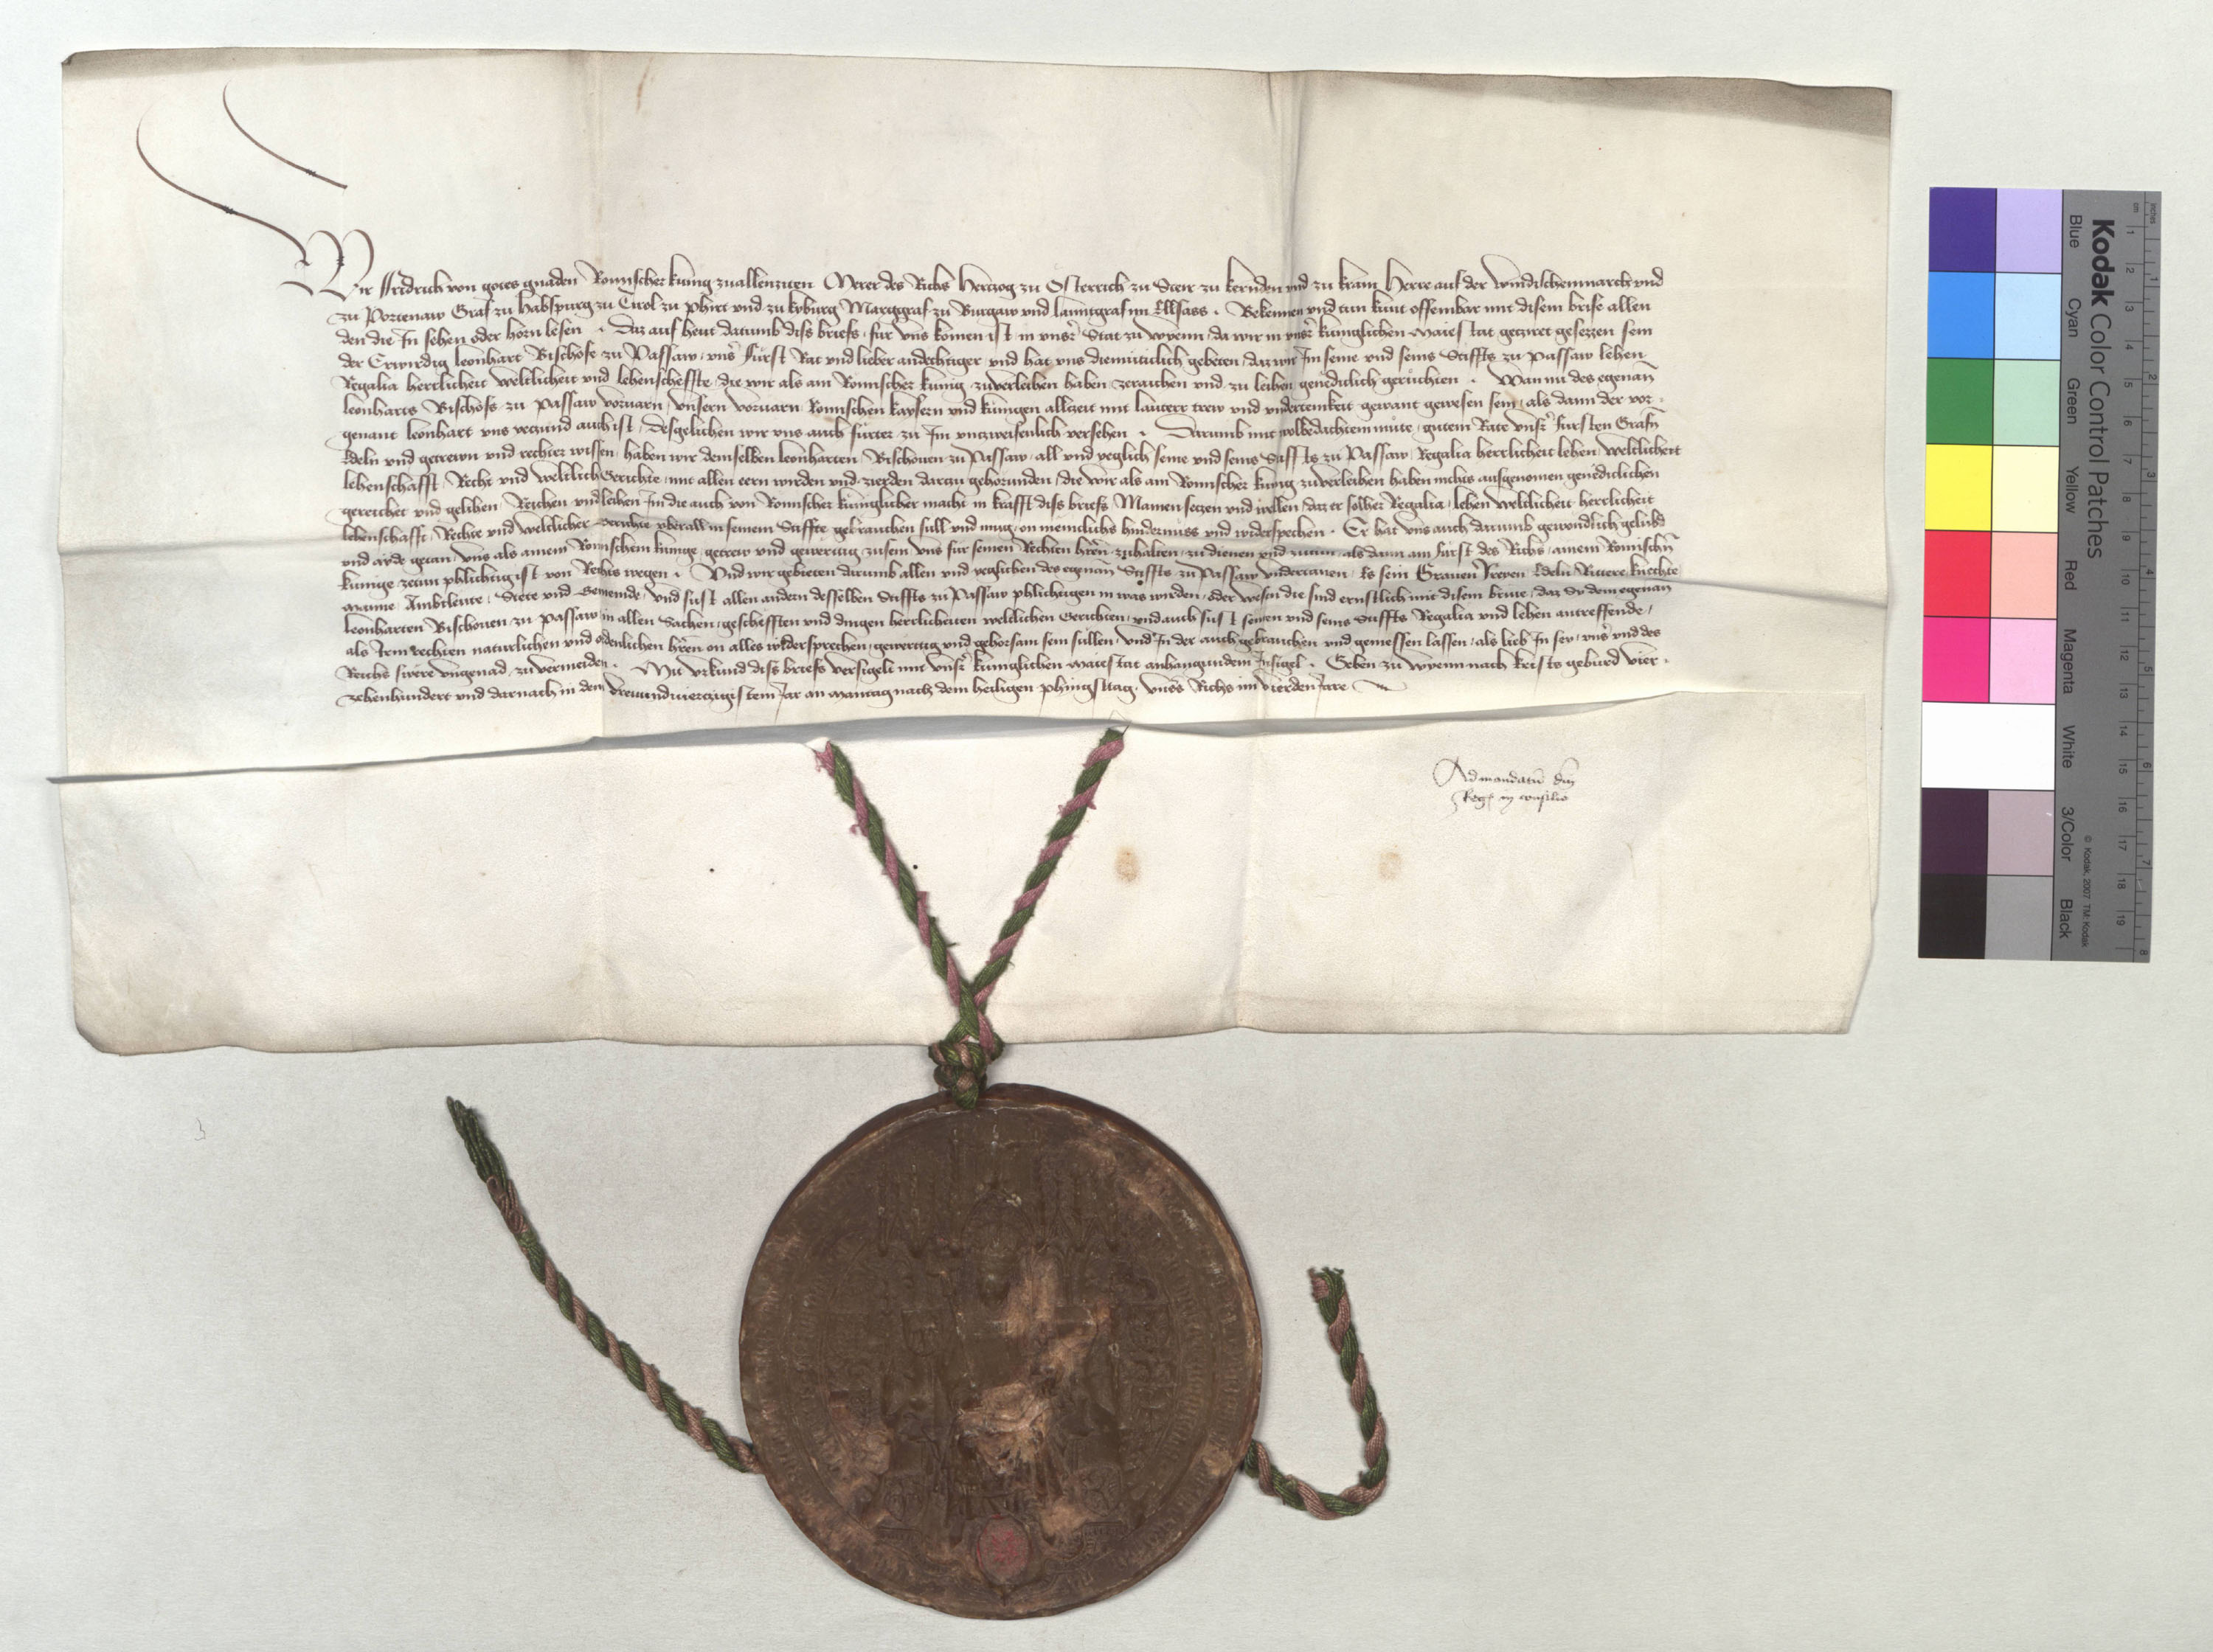 Wir Fridrich von gotes gnaden Romischer kunig zuallenzeiten Merer des Richs Herczog zu Osterrich zu Steir zu kernden und zu krain Herre auf der Windischenmarch und
zu Portenaw Graf zu Habspurg zu Tirol zu phirt und zu kyburg Marggraf zu Burgaw und lanntgraf im Ellsass. Bekennen und tun kunt offembar mit disem brife allen
den die In sehen oder horn lesen. Daz auf heut datumb diss briefs, fur uns komen ist in unsr Stat zu wyenn, da wir in unsr kuniglichen Maiestat geziret gesezzen sein
der Erwirdig leonhart Bischofe zu Passaw, unsr Fürst Rat und lieber andechtiger und hat uns diemütiklich gebeten, daz wir Im seine und seins Stiffts zu passaw lehen
Regalia herrlicheit weltlicheit und lehenscheffte, die wir als ain Romischer kunig zuverleihen haben zeraichen und zu leihen genediclich geruchten. Wan nu des egenan
leonharts Bischofs zu passaw vorvarn, unsern vorvarn Romischen kaysern und kunigen allzeit mit lautrer trew und undertenikeit gewant gewesen sein, als dann der vor-
genant leonhart uns yeczund auch ist, desgelichen wir uns auch fürter zu Im unczweifenlich versehen. Darumb mit wolbedachtem mute, gutem Rate unsr fursten Grafn
Edeln und getrewn und rechter wissen, haben wir demselben leonharten Bischouen zu Passaw, all und yeglich seine und seins Stiffts zu Passaw, Regalia herrlicheit lehen, weltlicheit
lehenschafft, Recht und weltlich Gerichte, mit allen eern wirden und zierden darczu gehorunden, die wir als ain Romischer kunig zuverleihen haben nichts ausgenomen genediclichen
gereichet und gelihen, Reichen und leihen Im die auch von Romischer kuniglicher macht in krafft diss briefs Mainen seczen und wellen, daz er solher Regalia, lehen weltlicheit herrlicheit
lehenschafft, Rechte und weltlicher Gerichte uberall in seinem Stiffte gebrauchen sull und mug, on meniclichs hindernüss und widersprechen. Er hat uns auch darumb gewondlich gelubd
und ayde getan, uns als ainem Romischem kunige, getrew und gewertig zusein uns fur seinen Rechten hrrn zuhalten, zu dienen und zutun, als dann ain fürst des Richs, ainem Romischn
kunige zetun phlichtig ist von Rechts wegen. Und wir gebieten darumb allen und yeglichen des egenan Stiffts zu Passaw undertanen, Es sein Grauen Freyen Edeln Rittere knechte
Manne Ambtleute, Stete und Gemeinde, und sust allen andern desselben Stiffts zu Passaw phlichtigen in was wirden, oder wesen die sind ernstlich mit disem briue, daz Sy dem egenan
leonharten Bischouen zu Passaw in allen Sachen, geschefften und dingen herrlicheiten weltlichen Gerichten, und auch sust seinen und seins Stiffts Regalia und lehen antreffende,
als Irem rechten naturlichen und ordenlichen hrrn on alles widersprechen, gewertig und gehorsam sein sullen, und In der auch gebrauchen und geniessen lassen, als lieb In sey, unsr und des
Reichs swere ungenad, zu vermeiden. Mit urkund diss briefs versigelt mit unsr kuniglichen Maiestat anhangundem Insigel. Geben zu wyenn nach kristi geburd vier-
zehenhundert und darnach in dem dreundvierczigistem Jar an mantag nach dem heiligen phingsttag, unsrs Richs im vierden Jare
Ad mandatu dni
Reg in consilio
Kodak Color Control Patches
Blue Cyan Green Yellow Red Magenta White 3/Color Black
© Kodak, 2007 TM: Kodak
inches 1 2 3 4 5 6 7 8
cm 1 2 3 4 5 6 7 8 9 10 11 12 13 14 15 16 17 18 19